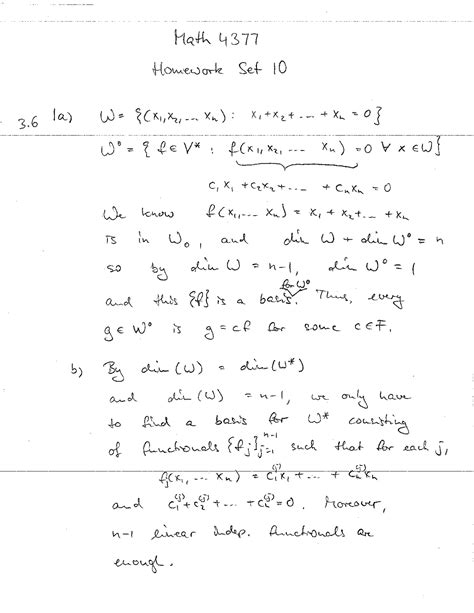 Math 4377
Homework Set 10
3.6 1a) W = {(x₁, x₂, ... xₙ) : x₁+x₂+ ... + xₙ = 0}
W° = { f ∈ V* : f(x₁, x₂, ... xₙ) = 0 ∀ x ∈ W}
c₁x₁ + c₂x₂ + ... + cₙxₙ = 0
We know f(x₁, ... xₙ) = x₁ + x₂ + ... + xₙ
is in W₀, and dim W + dim W° = n
so by dim W = n-1, dim W° = 1
and this {f} is a basis for W°. Thus, every
g ∈ W° is g = cf for some c ∈ F.
b) By dim (W) = dim (W*)
and dim (W) = n-1, we only have
to find a basis for W* consisting
of functionals {fⱼ}ⱼ₌₁ⁿ⁻¹ such that for each j,
fⱼ(x₁, ... xₙ) = c₁⁽ʲ⁾x₁ + ... + cₙ⁽ʲ⁾xₙ
and c₁⁽ʲ⁾ + c₂⁽ʲ⁾ + ... + cₙ⁽ʲ⁾ = 0. Moreover,
n-1 linear indep. functionals are
enough.